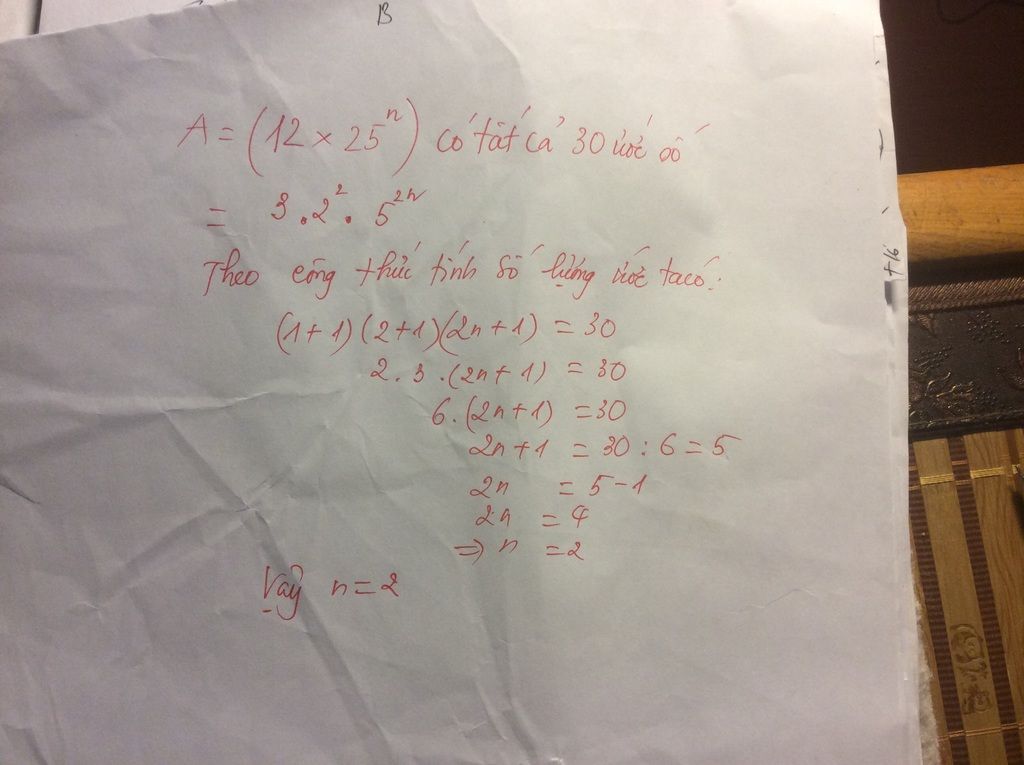 B
A = (12 × 25ⁿ) có tất cả 30 ước số
= 3 . 2² . 5²ⁿ
Theo công thức tính số lượng ước ta có:
(1+1)(2+1)(2n+1) = 30
2 . 3 . (2n+1) = 30
6 . (2n+1) = 30
2n+1 = 30 : 6 = 5
2n = 5-1
2n = 4
=> n = 2
Vậy n = 2